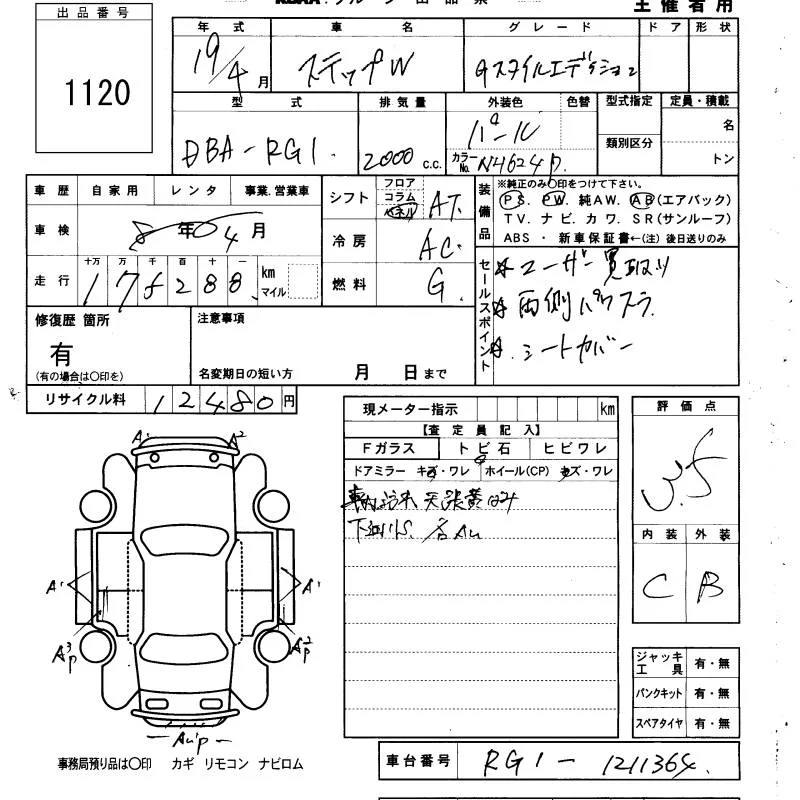 出品番号
主催者用
1120
年式 車名 グレード ドア 形状
19/4月 ステップW Gスタイルエディション
型式 排気量 外装色 色替 型式指定 定員・積載
類別区分 名
DBA-RG1 2000 c.c. パール トン
カラーNo. NH624P
車歴 自家用 レンタ 事業.営業車
シフト フロア コラム パネル AT.
装備品 ※純正のみ〇印をつけて下さい。
PS. PW. 純AW. AB(エアバック)
TV. ナビ. カワ. SR(サンルーフ)
ABS ・ 新車保証書←(注) 後日送りのみ
車検 年 4月
冷房 AC.
走行 十万 万 千 百 十 一
178288 km マイル
燃料 G.
セールスポイント
☆ユーザー買取り
☆両側パワスラ
☆.シートカバー
修復歴 箇所
有
(有の場合は〇印を)
注意事項
名変期日の短い方 月 日まで
リサイクル料 12480円
現メーター指示 km
【査定員記入】
Fガラス トビ石 ヒビワレ
ドアミラー キズ・ワレ ホイール(CP) キズ・ワレ
評価点
3.5
内装 外装
C B
A1 A2
A1 A1
A3P A2P
AUP
事務局預り品は〇印 カギ リモコン ナビロム
ジャッキ工具 有・無
パンクキット 有・無
スペアタイヤ 有・無
車台番号 RG1-1211364.